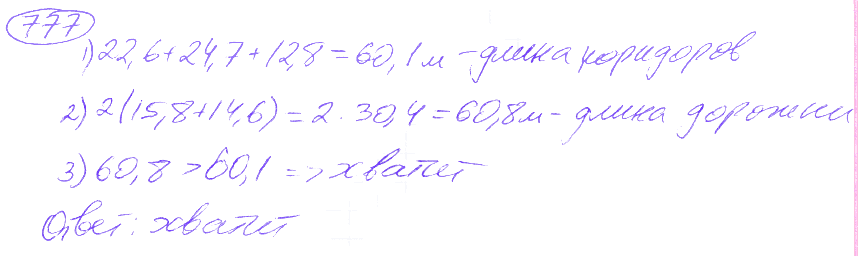 777
1) 22,6+24,7+12,8=60,1м - длина коридоров
2) 2(15,8+14,6)=2·30,4=60,8м - длина дорожки
3) 60,8>60,1 => хватит
Ответ: хватит